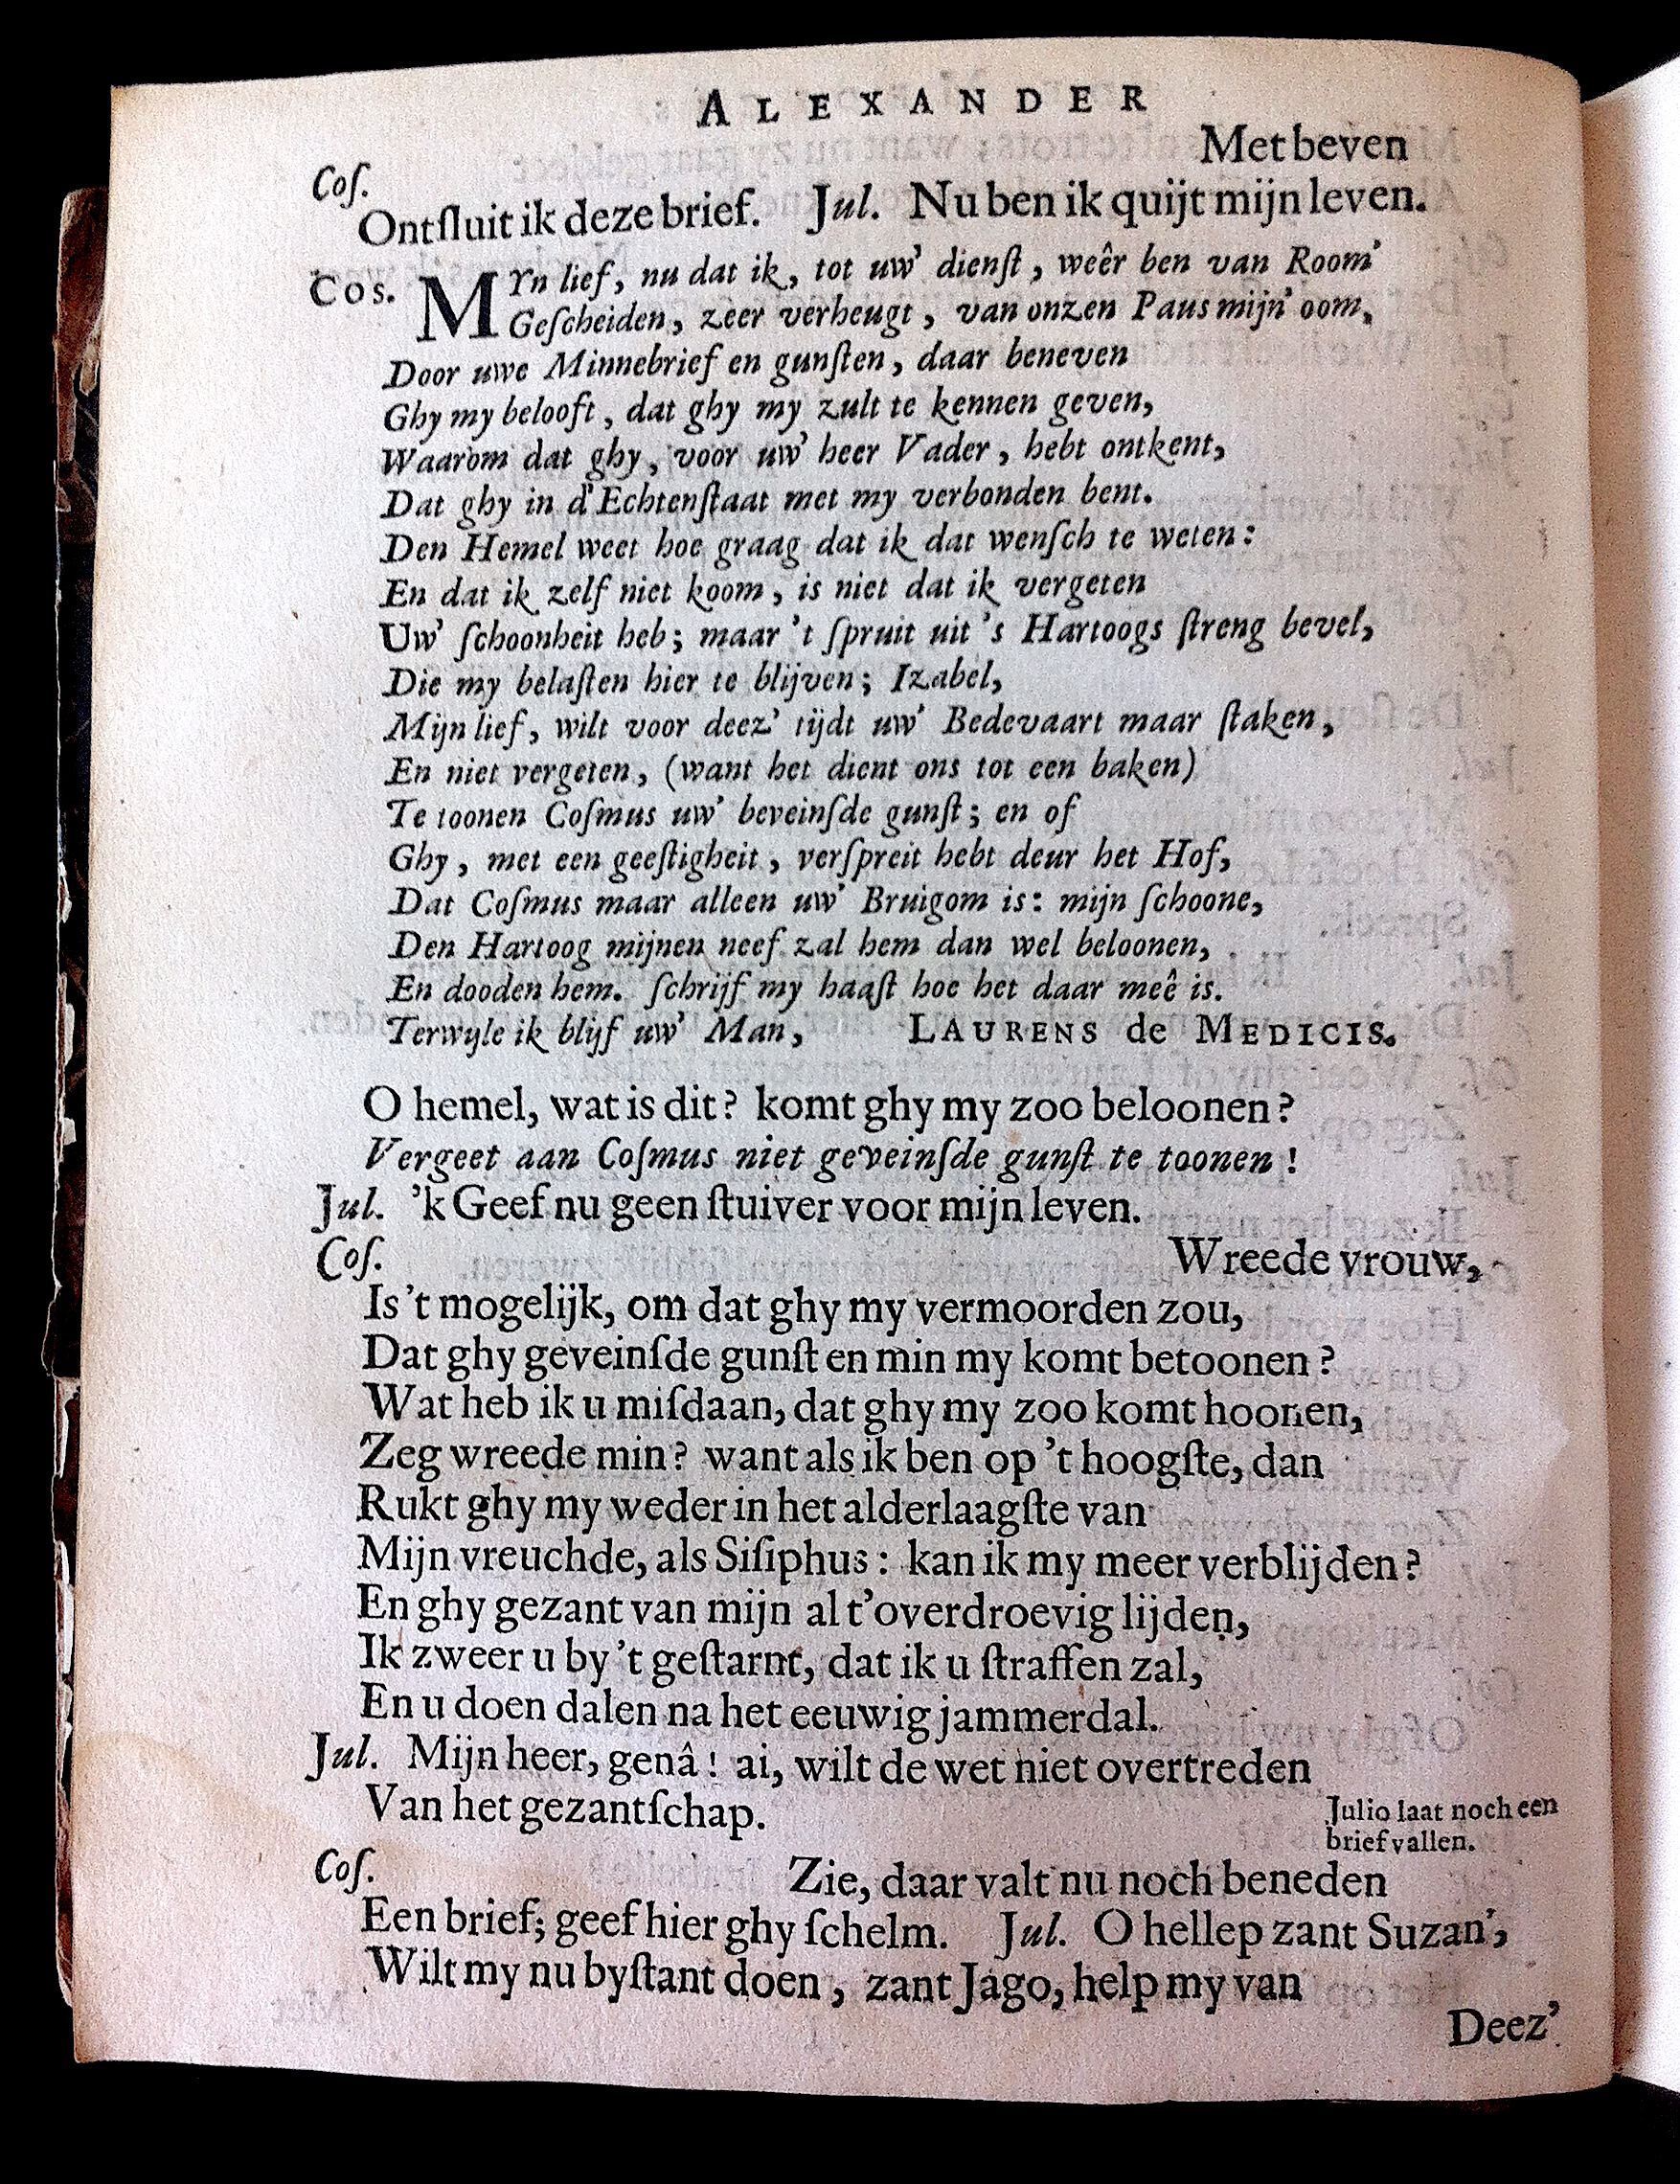 ALEXANDER
Met beven
Coſ.
Ontſluit ik deze brief. Jul. Nu ben ik quijt mijn leven.
Cos. MYn lief, nu dat ik, tot uw' dienſt, weêr ben van Room'
Geſcheiden, zeer verheugt, van onzen Paus mijn' oom,
Door uwe Minnebrief en gunſten, daar beneven
Ghy my belooft, dat ghy my zult te kennen geven,
Waarom dat ghy, voor uw' heer Vader, hebt ontkent,
Dat ghy in d'Echtenſtaat met my verbonden bent.
Den Hemel weet hoe graag dat ik dat wenſch te weten:
En dat ik zelf niet koom, is niet dat ik vergeten
Uw' ſchoonheit heb; maar 't ſpruit uit 's Hartoogs ſtreng bevel,
Die my belaſten hier te blijven; Izabel,
Mijn lief, wilt voor deez' tijdt uw' Bedevaart maar ſtaken,
En niet vergeten, (want het dient ons tot een baken)
Te toonen Coſmus uw' beveinſde gunſt; en of
Ghy, met een geeſtigheit, verſpreit hebt deur het Hof,
Dat Coſmus maar alleen uw' Bruigom is: mijn ſchoone,
Den Hartoog mijnen neef zal hem dan wel beloonen,
En dooden hem. ſchrijf my haaſt hoe het daar meê is.
Terwyle ik blijf uw' Man, LAURENS de MEDICIS.
O hemel, wat is dit? komt ghy my zoo beloonen?
Vergeet aan Coſmus niet geveinſde gunſt te toonen!
Jul. 'k Geef nu geen ſtuiver voor mijn leven.
Coſ. Wreede vrouw,
Is 't mogelijk, om dat ghy my vermoorden zou,
Dat ghy geveinſde gunſt en min my komt betoonen?
Wat heb ik u miſdaan, dat ghy my zoo komt hoonen,
Zeg wreede min? want als ik ben op 't hoogſte, dan
Rukt ghy my weder in het alderlaagſte van
Mijn vreuchde, als Siſiphus: kan ik my meer verblijden?
En ghy gezant van mijn al t'overdroevig lijden,
Ik zweer u by 't geſtarnt, dat ik u ſtraffen zal,
En u doen dalen na het eeuwig jammerdal.
Jul. Mijn heer, genâ! ai, wilt de wet niet overtreden
Van het gezantſchap.
Julio laat noch een
brief vallen.
Coſ. Zie, daar valt nu noch beneden
Een brief; geef hier ghy ſchelm. Jul. O hellep zant Suzan',
Wilt my nu byſtant doen, zant Jago, help my van
Deez'